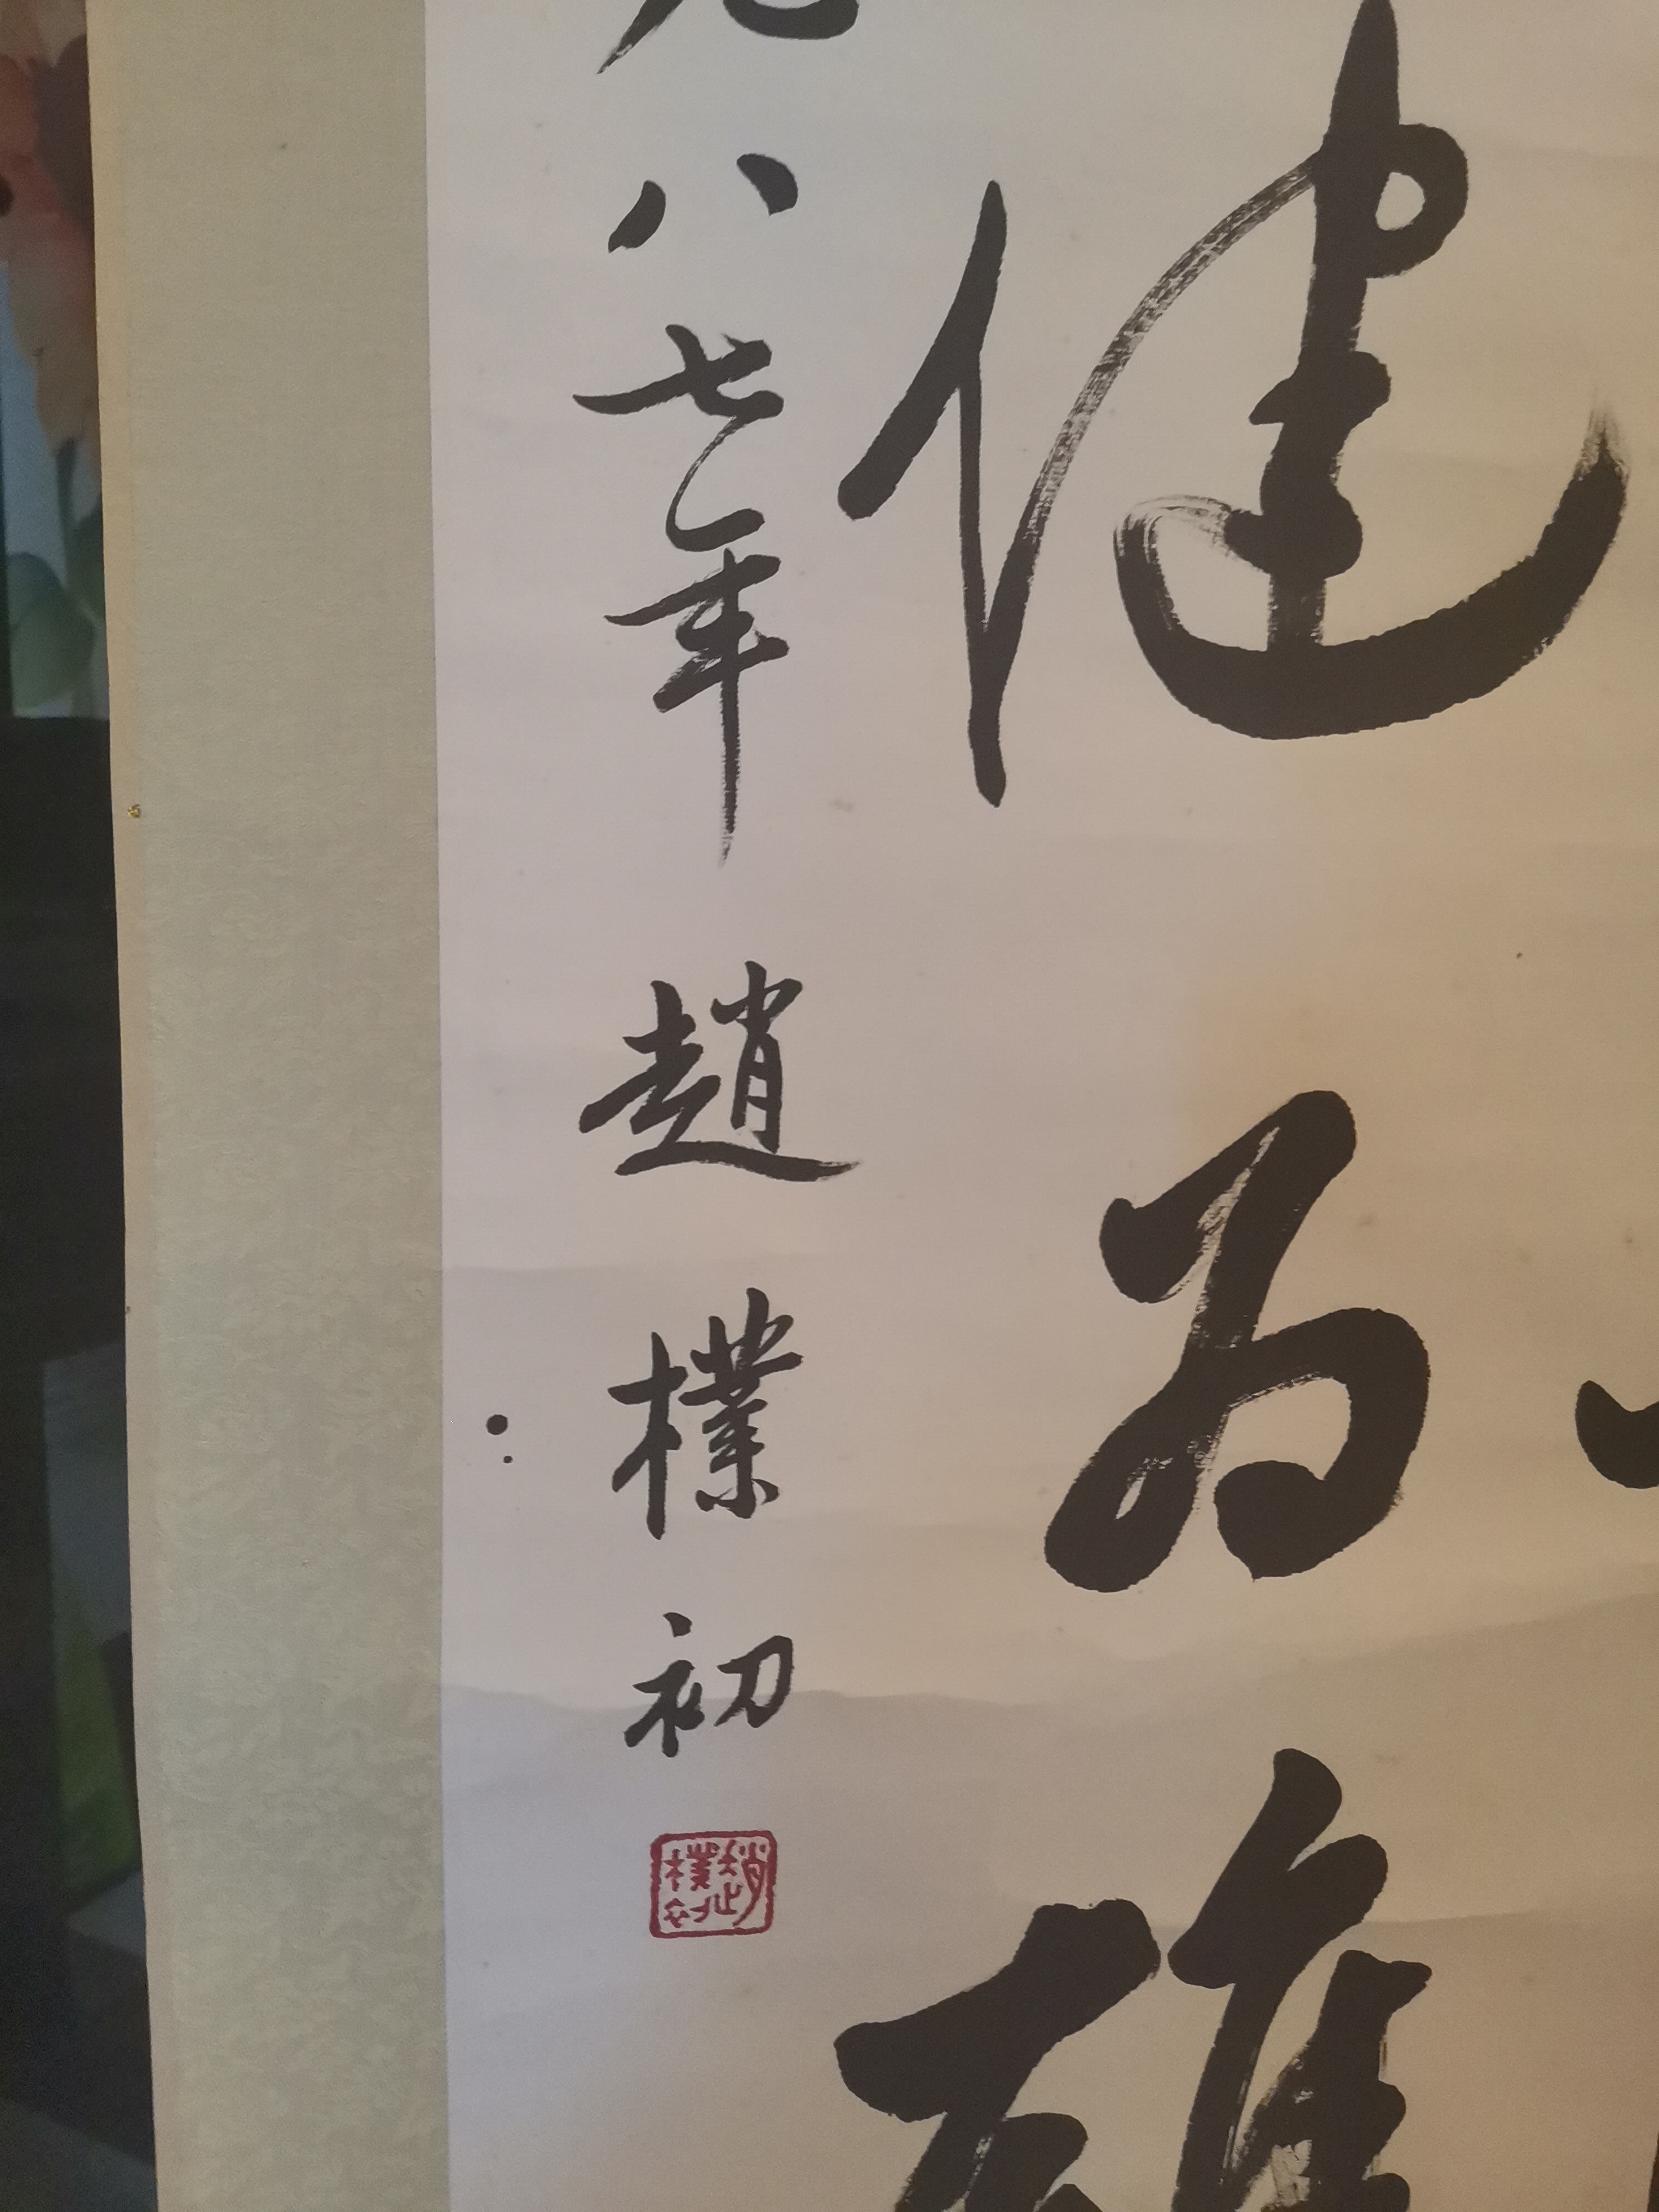 健為雄
九八七年 趙樸初
趙樸初